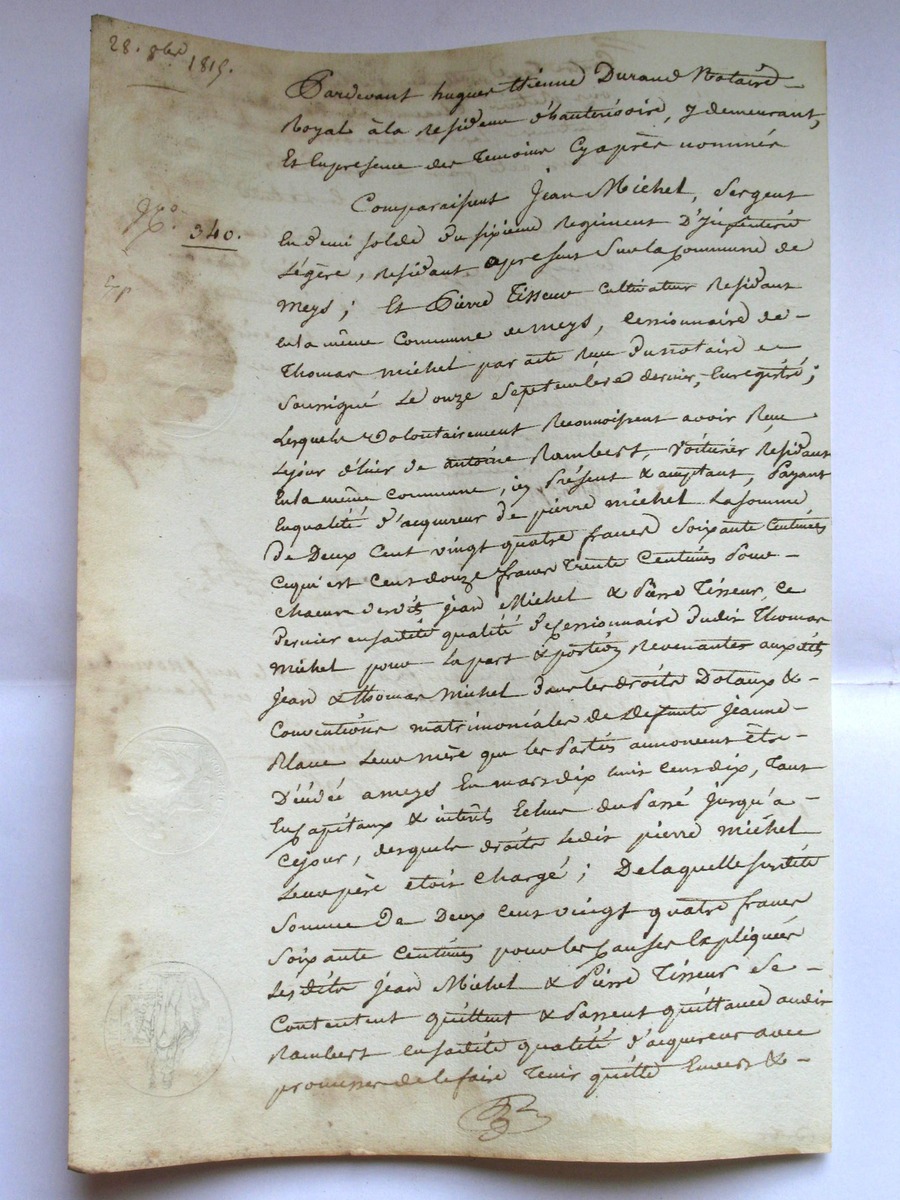 28. 8bre 1815.
Pardevant hugues étienne Durand Notaire
Royal à la résidence d'hauterivoire, y demeurant,
Et En presence des Temoins Cyaprès nommés
Comparaissent Jean Michel, Sergent
En demi solde du sixième Regiment D'Infanterie
Légère, résidant apresent Sur la Commune de
Meys; Et Pierre Tisseur Cultivateur Résidant
En la même Commune de meys, Cessionnaire de
Thomas Michel par acte Reçu du notaire
Soussigné Le onze Septembre dernier, Enregistré;
Lesquels Volontairement Reconnoissent avoir Reçu
Le jour d'hier de antoine Rambert, Voiturier Résidant
En la même Commune, icy Présent & acceptant, Payant
En qualité d'acquereur de pierre michel La somme
de Deux Cent vingt quatre francs Soixante Centimes
Ce qui est Cent douze francs Trente Centimes Pour
Chacun desdits Jean Michel & Pierre Tisseur, Ce
Dernier en sadite qualité de Cessionnaire dudit Thomas
Michel pour La part & portion Revenantes auxdits
Jean & thomas Michel Dans les droits Dotaux &
Conventions matrimoniales de defunte Jeanne
Leur mère que les Parties annoncent Etre
Décédée a meys En mars dix huit cent dix, Tant
En Capitaux & intérêts Echus du Passé Jusqu'a
Cejour, desquels droits Ledit pierre michel
Leur père etoit Chargé; De laquelle susdite
Somme de Deux cent vingt quatre francs
Soixante Centimes pour les Causes Expliquées
Lesdits Jean Michel & Pierre Tisseur Se
Contentent quittent & Passent quittance audit
Rambert en sadite qualité d'acquereur avec
promesse de le faire Tenir quitte Envers &
No.
340.